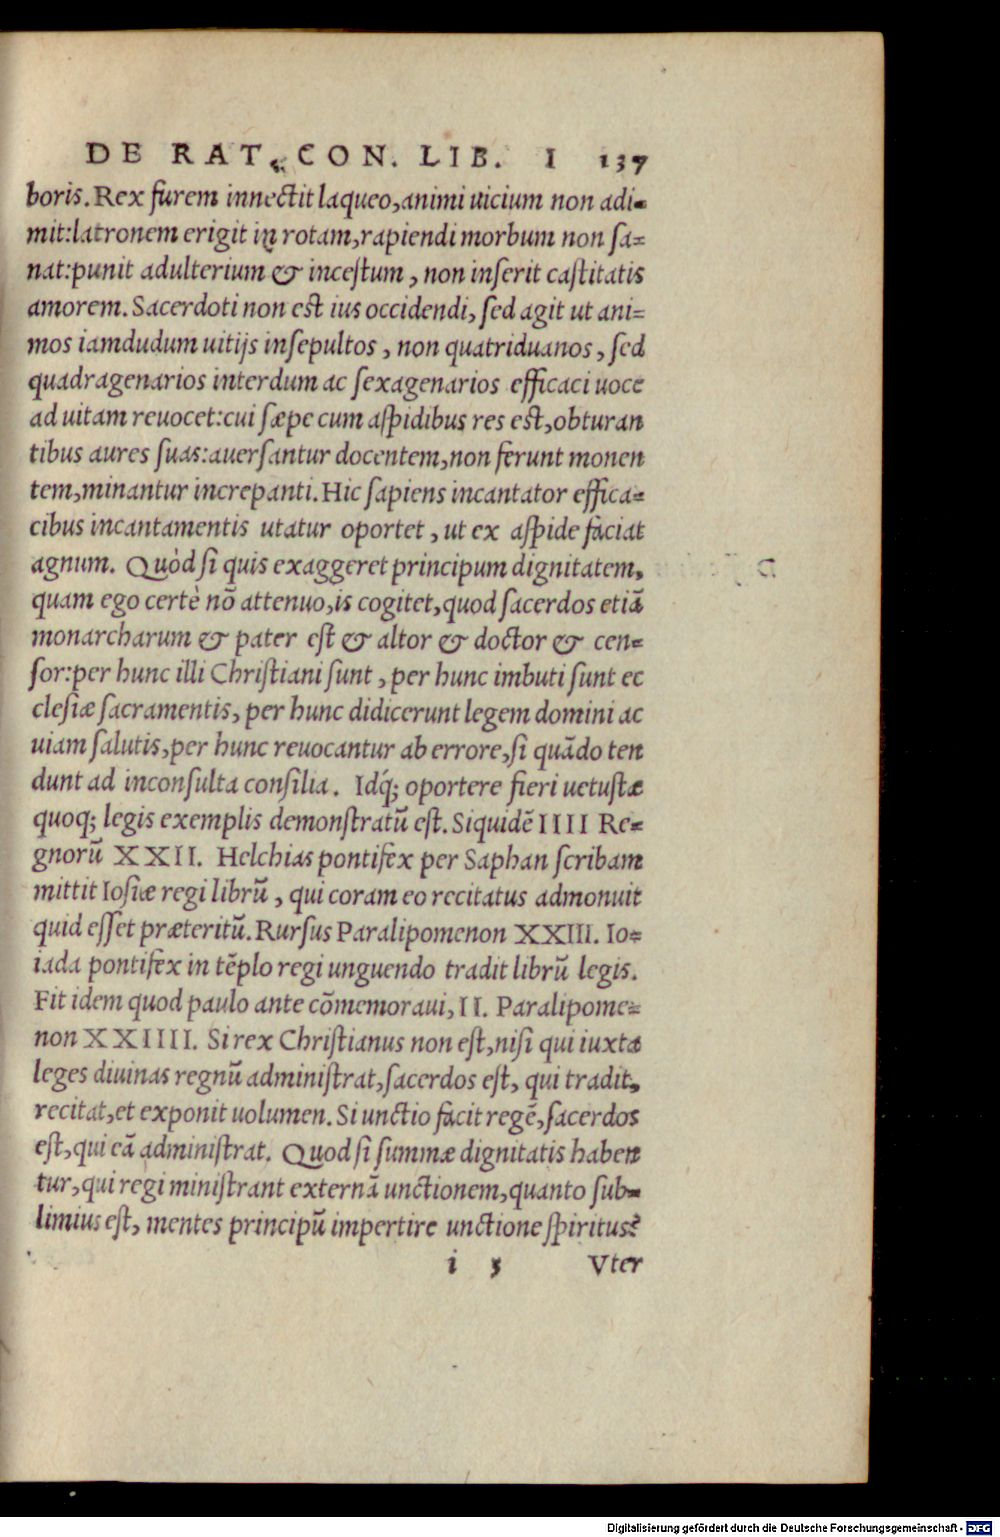 DE RAT. CON. LIB. I 137
boris. Rex furem innectit laqueo, animi uicium non adi-
mit: latronem erigit in rotam, rapiendi morbum non sa-
nat: punit adulterium & incestum, non inserit castitatis
amorem. Sacerdoti non est ius occidendi, sed agit ut ani-
mos iamdudum uitijs insepultos, non quatriduanos, sed
quadragenarios interdum ac sexagenarios efficaci uoce
ad uitam reuocet: cui sæpe cum aspidibus res est, obturan
tibus aures suas: auersantur docentem, non ferunt monen
tem, minantur increpanti. Hic sapiens incantator effica-
cibus incantamentis utatur oportet, ut ex aspide faciat
agnum. Quòd si quis exaggeret principum dignitatem,
quam ego certè nõ attenuo, is cogitet, quod sacerdos etiã
monarcharum & pater est & altor & doctor & cen-
sor: per hunc illi Christiani sunt, per hunc imbuti sunt ec
clesiæ sacramentis, per hunc didicerunt legem domini ac
uiam salutis, per hunc reuocantur ab errore, si quãdo ten
dunt ad inconsulta consilia. Idq́; oportere fieri uetustæ
quoq; legis exemplis demonstratũ est. Siquidẽ IIII Re-
gnorũ XXII. Helchias pontifex per Saphan scribam
mittit Iosiæ regi librũ, qui coram eo recitatus admonuit
quid esset præteritũ. Rursus Paralipomenon XXIII. Io-
iada pontifex in tẽplo regi unguendo tradit librũ legis.
Fit idem quod paulo ante cõmemoraui, II. Paralipome-
non XXIIII. Si rex Christianus non est, nisi qui iuxta
leges diuinas regnũ administrat, sacerdos est, qui tradit,
recitat, et exponit uolumen. Si unctio facit regẽ, sacerdos
est, qui eã administrat. Quod si summæ dignitatis haben
tur, qui regi ministrant externã unctionem, quanto sub-
limius est, mentes principũ impertire unctione spiritus?
i 5 Vter
Digitalisierung gefördert durch die Deutsche Forschungsgemeinschaft - DFG